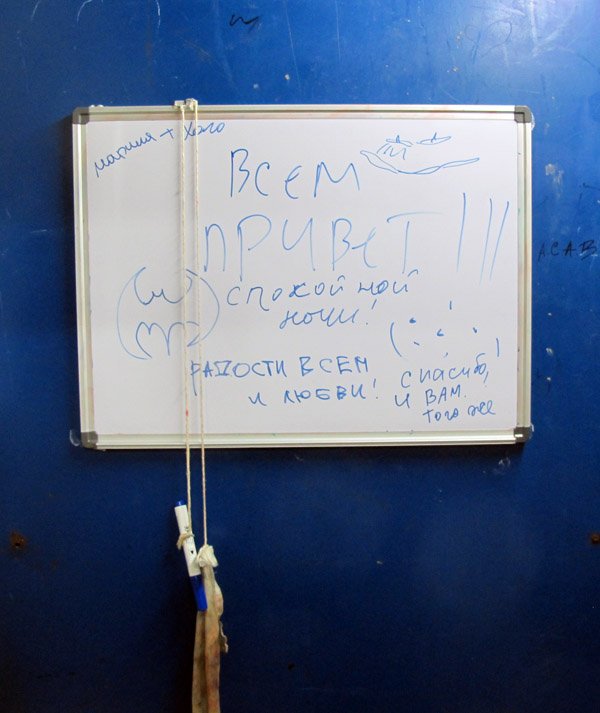 ВСЕМ
ПРИВЕТ!!!
СПОКОЙНОЙ
НОЧИ!
РАДОСТИ ВСЕМ
И ЛЮБВИ!
СПАСИБО,
И ВАМ
ТОГО ЖЕ
A.C.A.B